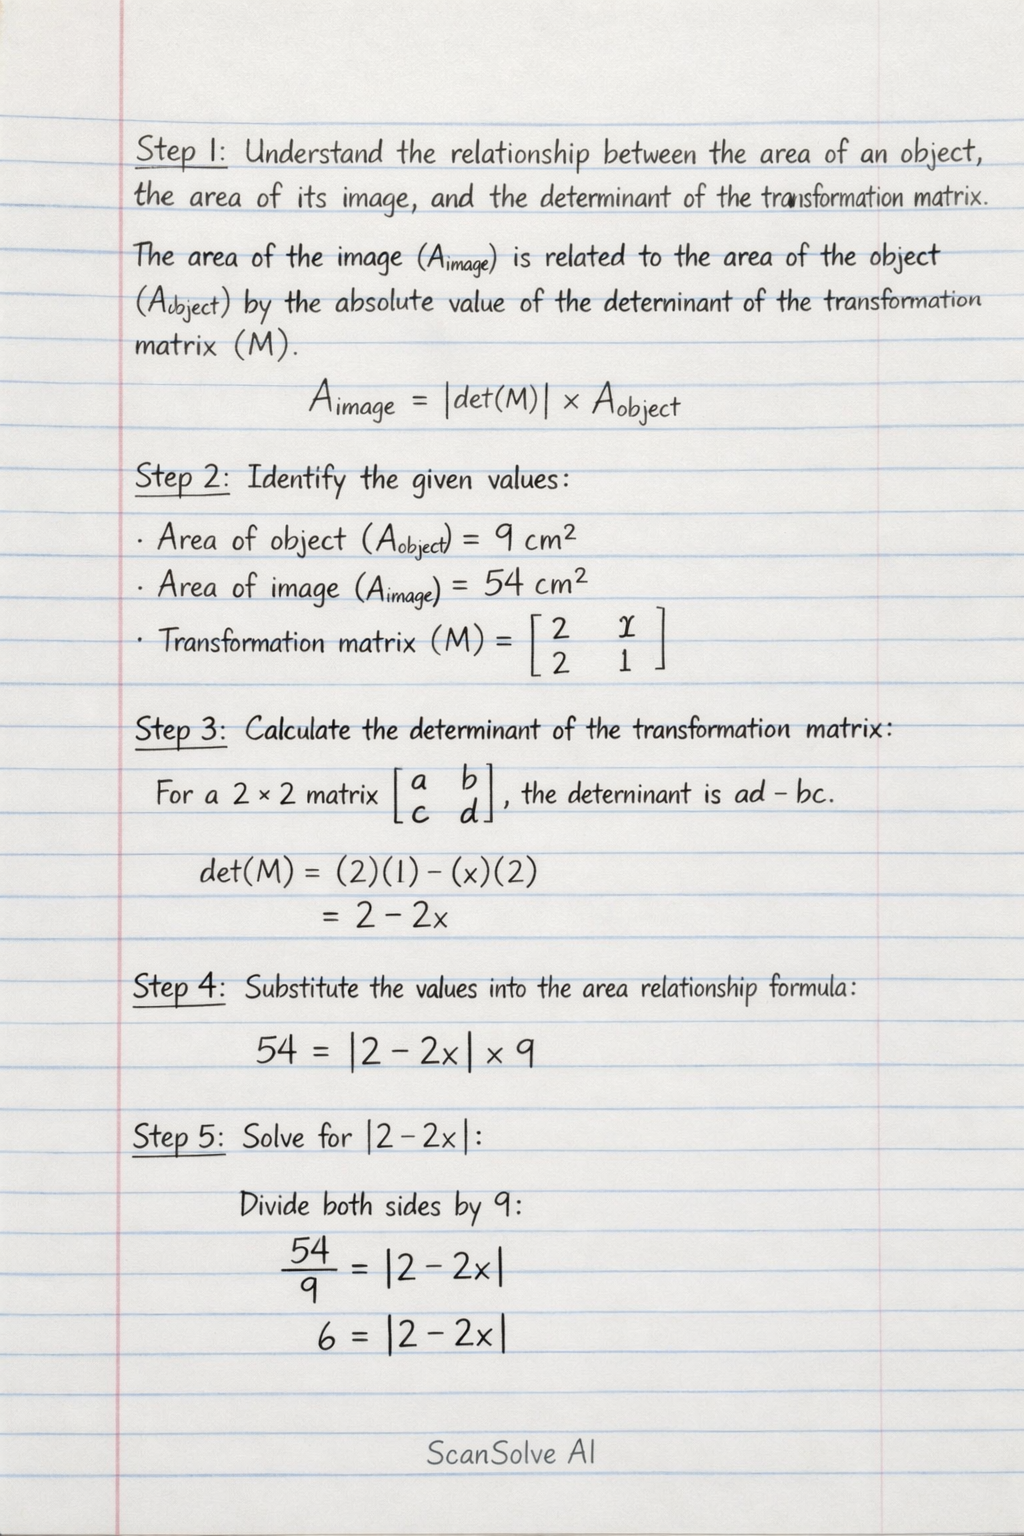 Step 1: Understand the relationship between the area of an object,
the area of its image, and the determinant of the transformation matrix.
The area of the image (A_image) is related to the area of the object
(A_object) by the absolute value of the deterninant of the transformation
matrix (M).
A_image = |det(M)| × A_object
Step 2: Identify the given values:
· Area of object (A_object) = 9 cm²
· Area of image (A_image) = 54 cm²
· Transformation matrix (M) = [2 x
2 1]
Step 3: Calculate the determinant of the transformation matrix:
For a 2 × 2 matrix [a b
c d], the deterninant is ad – bc.
det(M) = (2)(1) – (x)(2)
= 2 – 2x
Step 4: Substitute the values into the area relationship formula:
54 = |2 – 2x| × 9
Step 5: Solve for |2 – 2x|:
Divide both sides by 9:
54/9 = |2 – 2x|
6 = |2 – 2x|
ScanSolve AI